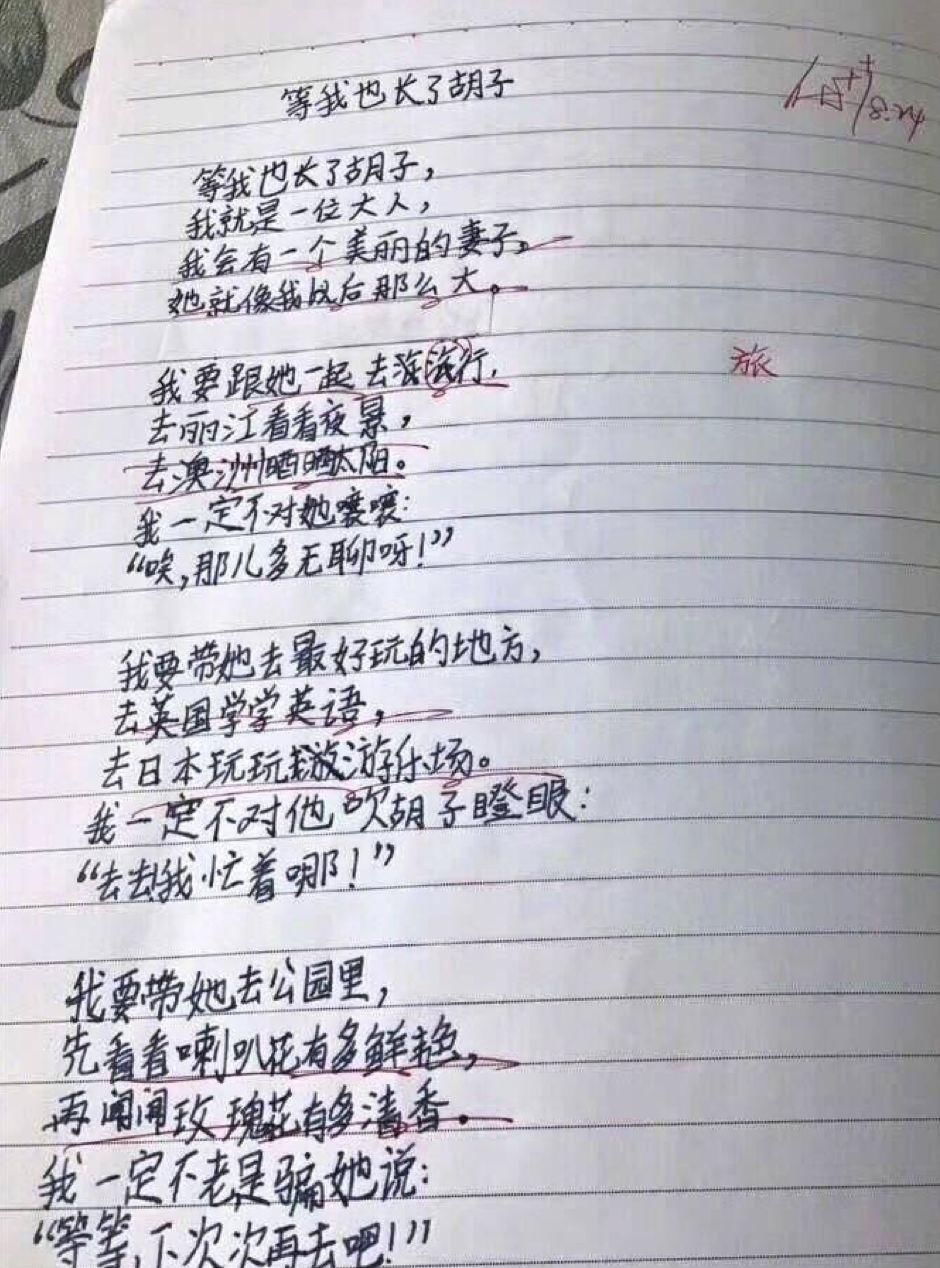 等我也长了胡子
8.24
等我也长了胡子，
我就是一位大人，
我会有一个美丽的妻子，
她就像我以后那么大。
我要跟她一起去旅行，
旅
去丽江看看夜景，
去澳洲晒晒太阳。
我一定不对她嚷嚷：
“唉，那儿多无聊呀！”
我要带她去最好玩的地方，
去英国学学英语，
去日本玩玩游乐场。
我一定不对他吹胡子瞪眼：
“去去我忙着哪！”
我要带她去公园里，
先看看喇叭花有多鲜艳，
再闻闻玫瑰花有多清香。
我一定不老是骗她说：
“等等，下次次再去吧！”